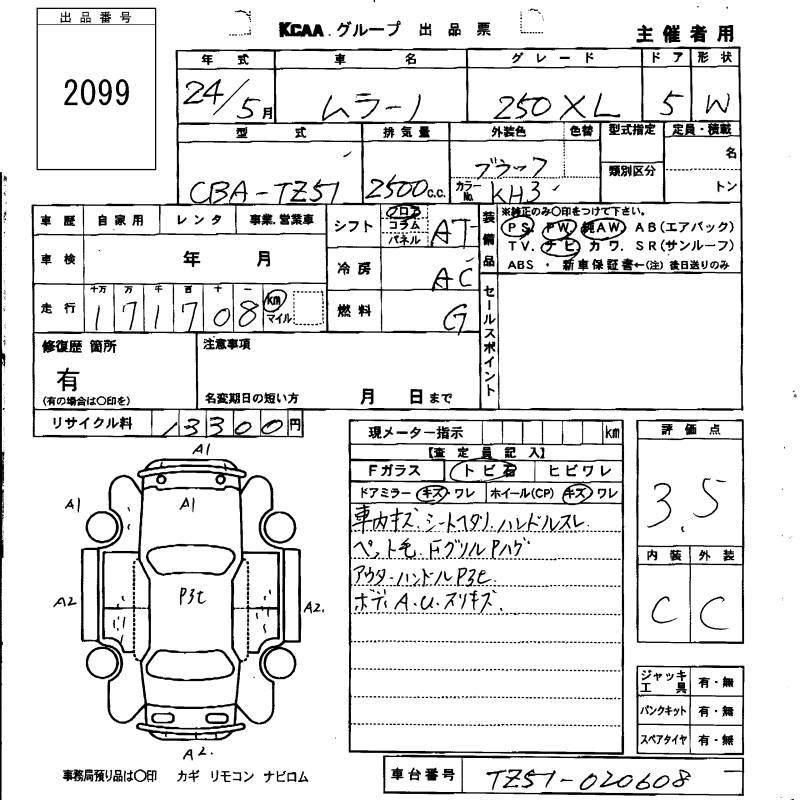 出品番号
2099
KCAA.グループ 出品票
主催者用
年式 車名 グレード ドア 形状
24/5月 ムラーノ 250XL 5 W
型式 排気量 外装色 色替 型式指定 定員・積載
CBA-TZ51 2500c.c. ブラック カラーNo. KH3 類別区分 名 トン
車歴 自家用 レンタ 事業.営業車
シフト フロア コラム パネル AT
装備品
※純正のみ〇印をつけて下さい。
PS. PW. 純AW. AB(エアバック)
TV. ナビ. カワ. SR(サンルーフ)
ABS ・ 新車保証書←(注)後日送りのみ
車検 年 月
冷房 AC
走行 十万 万 千 百 十 一
171708 km マイル
燃料 G
セールスポイント
修復歴 箇所
有
(有の場合は〇印を)
注意事項
名変期日の短い方 月 日まで
リサイクル料 13300円
現メーター指示 km
【査定員記入】
Fガラス トビ石 ヒビワレ
ドアミラー キズ・ワレ ホイール(CP) キズ・ワレ
車内キズ.シートヘタリ.ハンドルスレ
ペット毛.FグリルPハゲ
アウターハンドルP3セ
ボディA.U.スリキズ.
評価点
3.5
内装 外装
C C
ジャッキ工具 有・無
パンクキット 有・無
スペアタイヤ 有・無
A1
A1
A1
A2
P3セ
A2.
A2.
事務局預り品は〇印 カギ リモコン ナビロム
車台番号 TZ51-020608